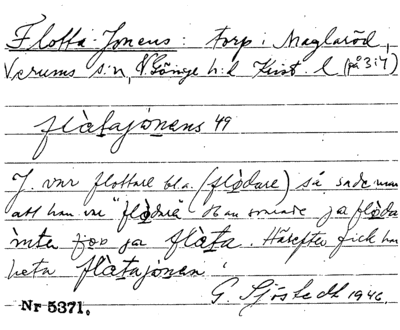 Flotta-Jonens: torp i Maglaröd,
Verums s:n, V Göinge h:d Krist. l (på 3:7)
flàtajonens 49
J. var flottare bl.a. (flødare) så sade man
att han var "flødare" Han svarade ja fløda
inte jov ja flàta. Härefter fick han
heta flàtajonen".
G. Sjöstedt 1946.
Nr 5371.